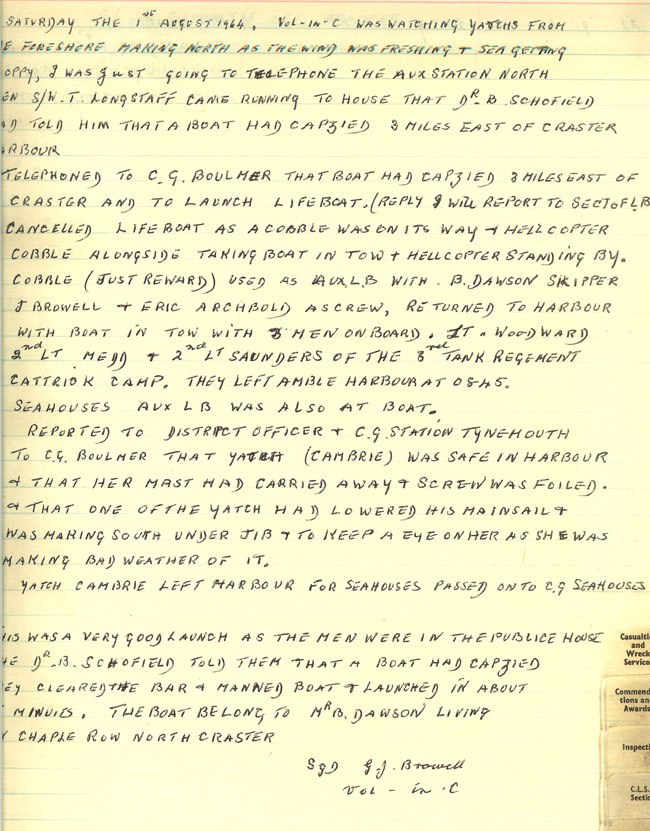 SATURDAY THE 1st AUGUST 1964. VOL-IN-C WAS WATCHING YATCHS FROM
E FORESHORE MAKING NORTH AS THE WIND WAS FRESHING & SEA GETTING
OPPY, I WAS JUST GOING TO TELEPHONE THE AUX STATION NORTH
EN S/W.T. LONGSTAFF CAME RUNNING TO HOUSE THAT DR. B. SCHOFIELD
AD TOLD HIM THAT A BOAT HAD CAPZIED 3 MILES EAST OF CRASTER
ARBOUR
TELEPHONED TO C.G. BOULMER THAT BOAT HAD CAPZIED 3 MILES EAST OF
CRASTER AND TO LAUNCH LIFEBOAT. (REPLY I WILL REPORT TO SECT OF LB
CANCELLED LIFEBOAT AS A COBBLE WAS ON ITS WAY & HELLCOPTER
COBBLE ALONGSIDE TAKING BOAT IN TOW & HELLCOPTER STANDING BY.
COBBLE (JUST REWARD) USED AS AUX LB WITH. B. DAWSON SKIPPER
J BROWELL & ERIC ARCHBOLD AS CREW, RETURNED TO HARBOUR
WITH BOAT IN TOW WITH 3 MEN ON BOARD. LT. WOODWARD
2nd LT MEDD & 2nd LT SAUNDERS OF THE 3rd TANK REGEMENT
CATTRICK CAMP. THEY LEFT AMBLE HARBOUR AT 0845.
SEAHOUSES AUX LB WAS ALSO AT BOAT.
REPORTED TO DISTRICT OFFICER & C.G. STATION TYNEMOUTH
TO C.G. BOULMER THAT YATCH (CAMBRIE) WAS SAFE IN HARBOUR
& THAT HER MAST HAD CARRIED AWAY & SCREW WAS FOILED.
& THAT ONE OF THE YATCH HAD LOWERED HIS MAINSAIL &
WAS MAKING SOUTH UNDER JIB & TO KEEP A EYE ON HER AS SHE WAS
MAKING BAD WEATHER OF IT.
YATCH CAMBRIE LEFT HARBOUR FOR SEAHOUSES PASSED ON TO C.G SEAHOUSES
HIS WAS A VERY GOOD LAUNCH AS THE MEN WERE IN THE PUBLICE HOUSE
HE DR. B. SCHOFIELD TOLD THEM THAT A BOAT HAD CAPZIED
EY CLEARED THE BAR & MANNED BOAT & LAUNCHED IN ABOUT
MINUTES. THE BOAT BELONG TO MR B. DAWSON LIVING
CHAPLE ROW NORTH CRASTER
SGD G.J. Browell
VOL - in - C
Casualti
and
Wreck
Service
Commend
tions an
Awards
Inspecti
C.L.S.
Sectio